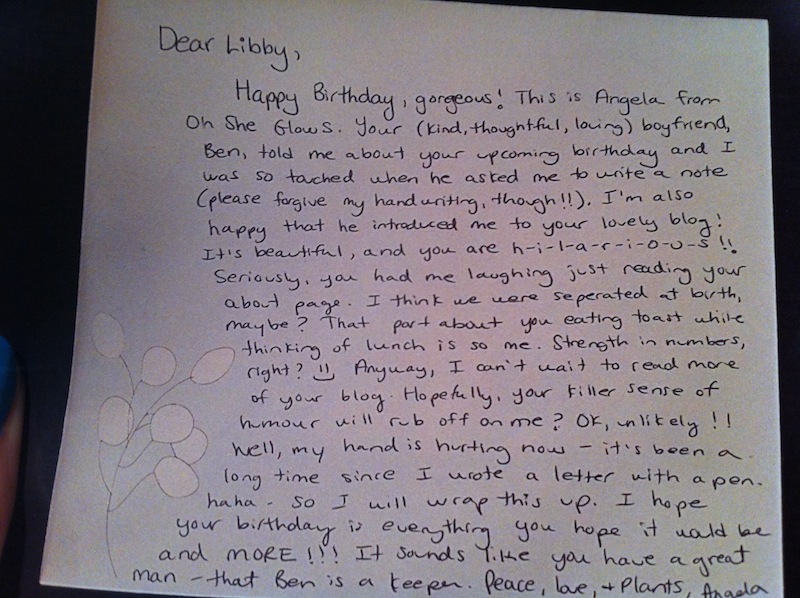 Dear Libby,
Happy Birthday, gorgeous! This is Angela from
Oh She Glows. Your (kind, thoughtful, loving) boyfriend,
Ben, told me about your upcoming birthday and I
was so touched when he asked me to write a note
(please forgive my handwriting, though!!). I'm also
happy that he introduced me to your lovely blog!
It's beautiful, and you are h-i-l-a-r-i-o-u-s!!
Seriously, you had me laughing just reading your
about page. I think we were seperated at birth,
maybe? That part about you eating toast while
thinking of lunch is so me. Strength in numbers,
right? :) Anyway, I can't wait to read more
of your blog. Hopefully, your killer sense of
humour will rub off on me? OK, unlikely!!
Well, my hand is hurting now - it's been a
long time since I wrote a letter with a pen.
haha - so I will wrap this up. I hope
your birthday is everything you hope it would be
and MORE!!! It sounds like you have a great
man - that Ben is a keeper. Peace, love, + Plants, Angela